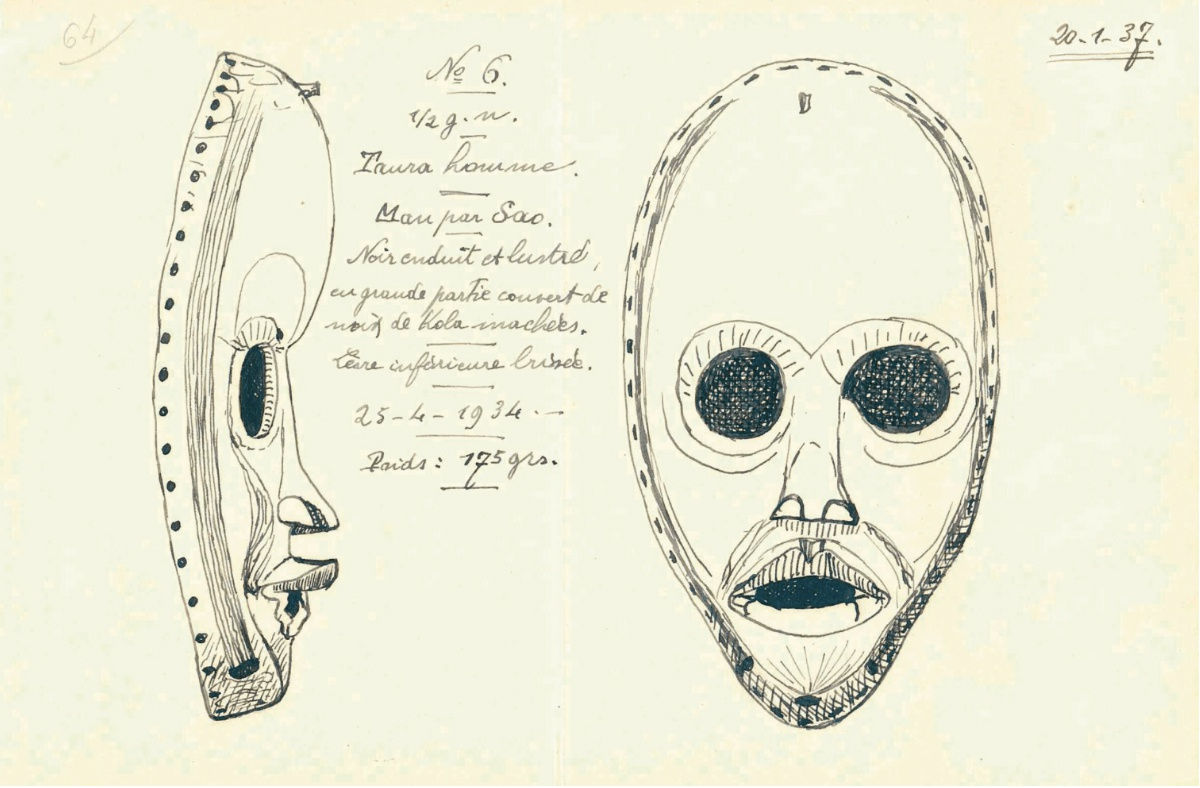 64
20-1-37.
No 6.
1/2 g. n.
Taura homme.
Mau par Sao.
Noir enduit et lustré,
en grande partie couvert de
noix de Kola machées.
Lèvre inférieure brisée.
25-4-1934.-
Poids: 175 grs.